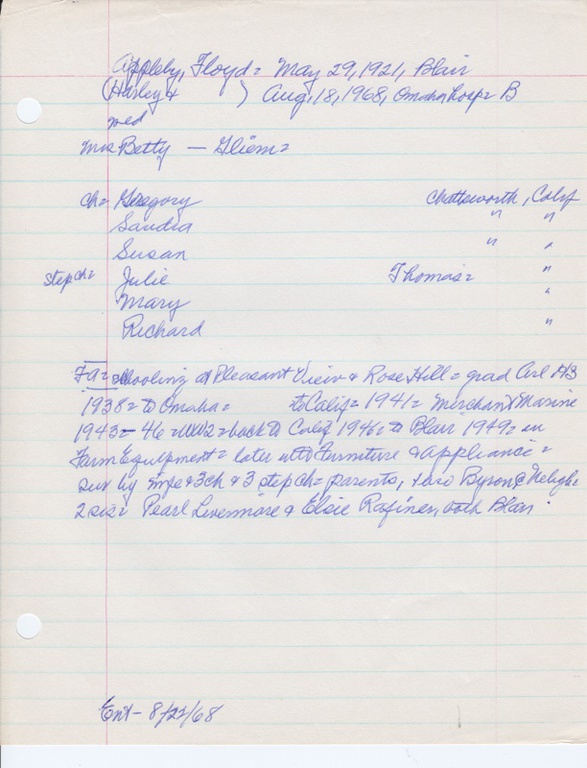 Appleby, Floyd = May 29, 1921, Blair
(Harley & ) Aug, 18, 1968, Omaha hosp = B
med
Mrs Betty — Gliem =
ch = Gregory Chattsworth, Calif
Sandra " "
Susan " "
step ch = Julie Thomas = "
Mary "
Richard "
Fa = schooling at Pleasant View & Rose Hill = grad Arl HS
1938 = to Omaha = to Calif = 1941 = Merchant Marine
1943 - 46 = WW2 = back to Calif 1946 = to Blair 1949 = in
Farm Equipment = later into Furniture & Appliance =
sur by wife & 3 ch & 3 step ch = parents, 1 bro Byron @ Neligh =
2 sis = Pearl Livermore & Elsie Rafiner, both Blair.
Ent - 8/22/68